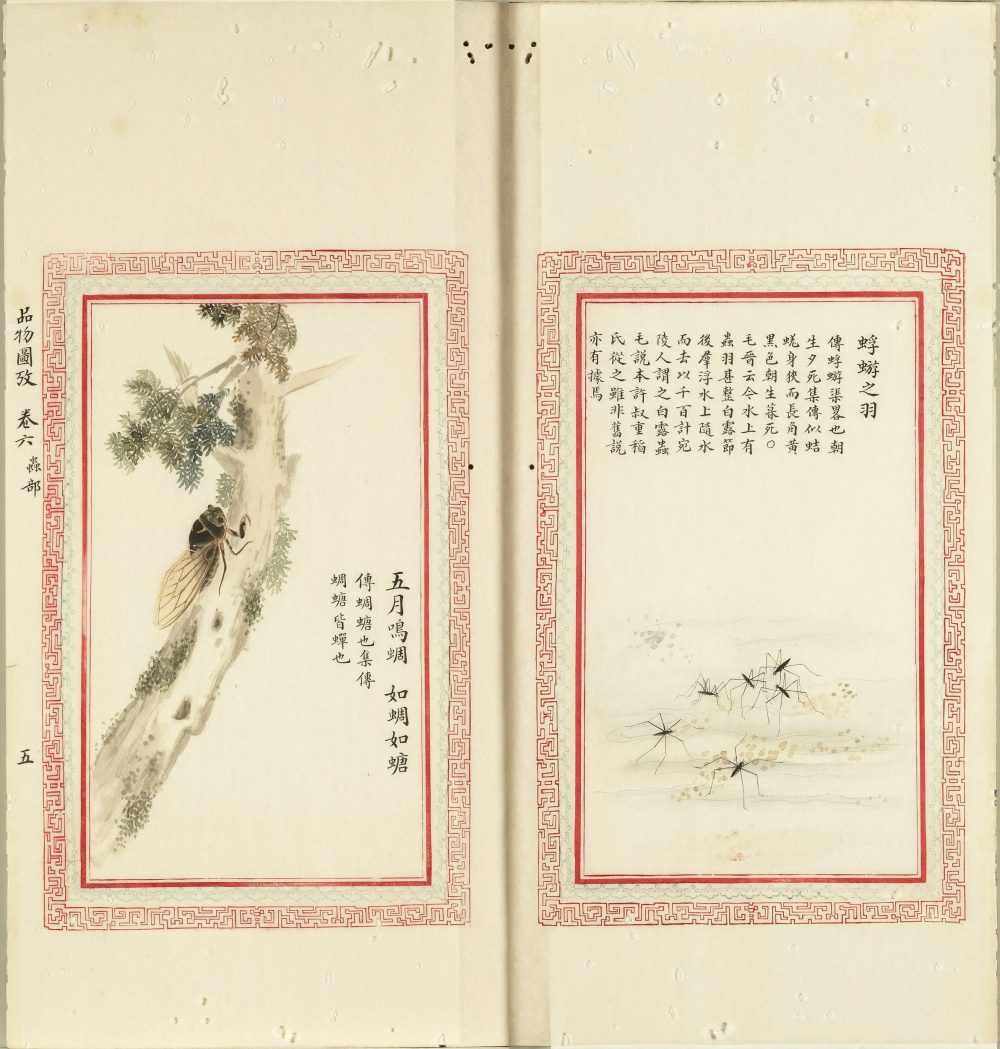 蜉蝣之羽
傳蜉蝣渠畧也朝
生夕死集傳似蛣
蜣身狹而長角黃
黑色朝生暮死○
毛晉云今水上有
蟲羽甚整白露節
後羣浮水上隨水
而去以千百計宛
陵人謂之白露蟲
毛說本許叔重稲
氏從之雖非舊說
亦有據焉
五月鳴蜩 如蜩如螗
傳蜩螗也集傳
蜩螗皆蟬也
品物圖攷 卷六 蟲部
五